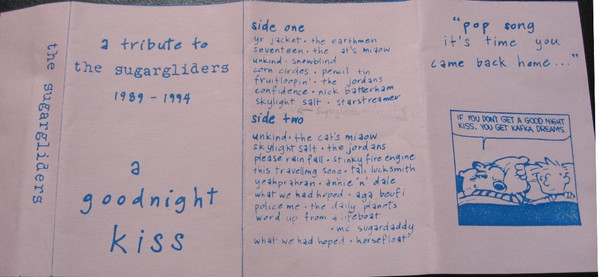 the sugargliders
a tribute to
the sugargliders
1989 - 1994
a
goodnight
kiss
side one
yr jacket • the earthmen
seventeen • the cat's miaow
unkind • snowblind
corn circles • pencil tin
fruitloopin' • the jordans
confidence • nick batterham
skylight salt • starstreamer
side two
unkind • the cat's miaow
skylight salt • the jordans
please rain fall • stinky fire engine
this travelling song • tali lucksmith
yeahprahran • annie 'n' dale
what we had hoped • aga beufi
police me • the daily planets
word up from a lifeboat
• mc sugardaddy
what we had hoped • horsefloat
"pop song
it's time you
came back home..."
IF YOU DON'T GET A GOOD NIGHT
KISS, YOU GET KAFKA DREAMS.